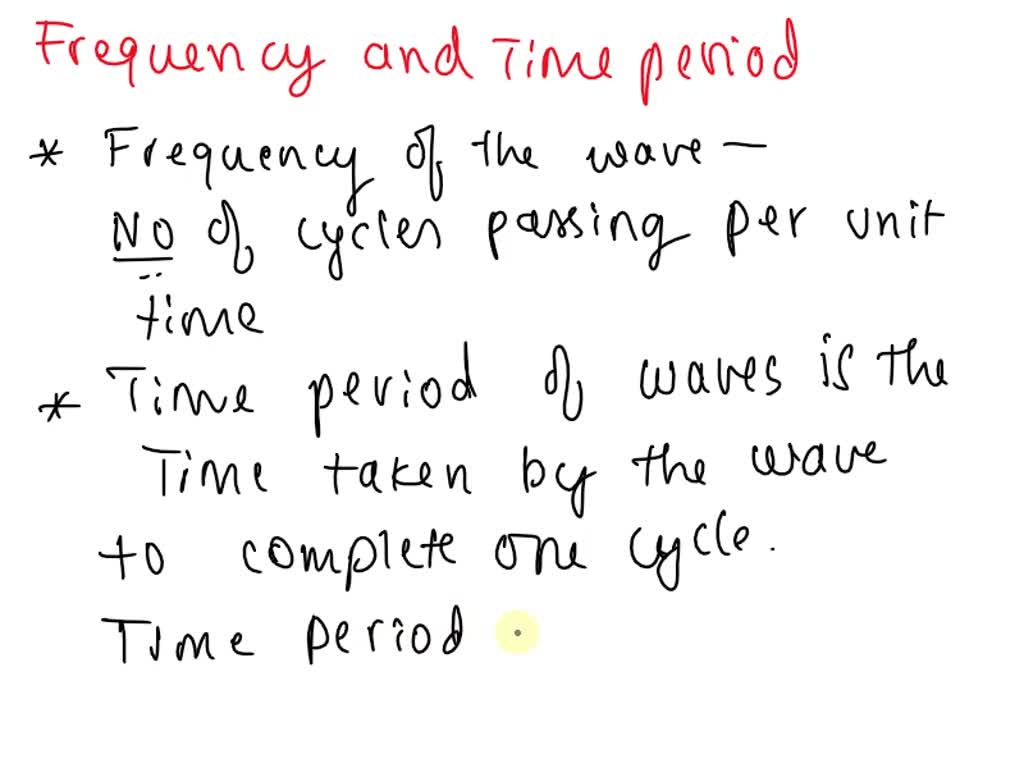 Frequency and Time period
* Frequency of the wave —
NO of cycles passing per unit
time
* Time period of waves is the
Time taken by the wave
to complete one cycle.
Time period